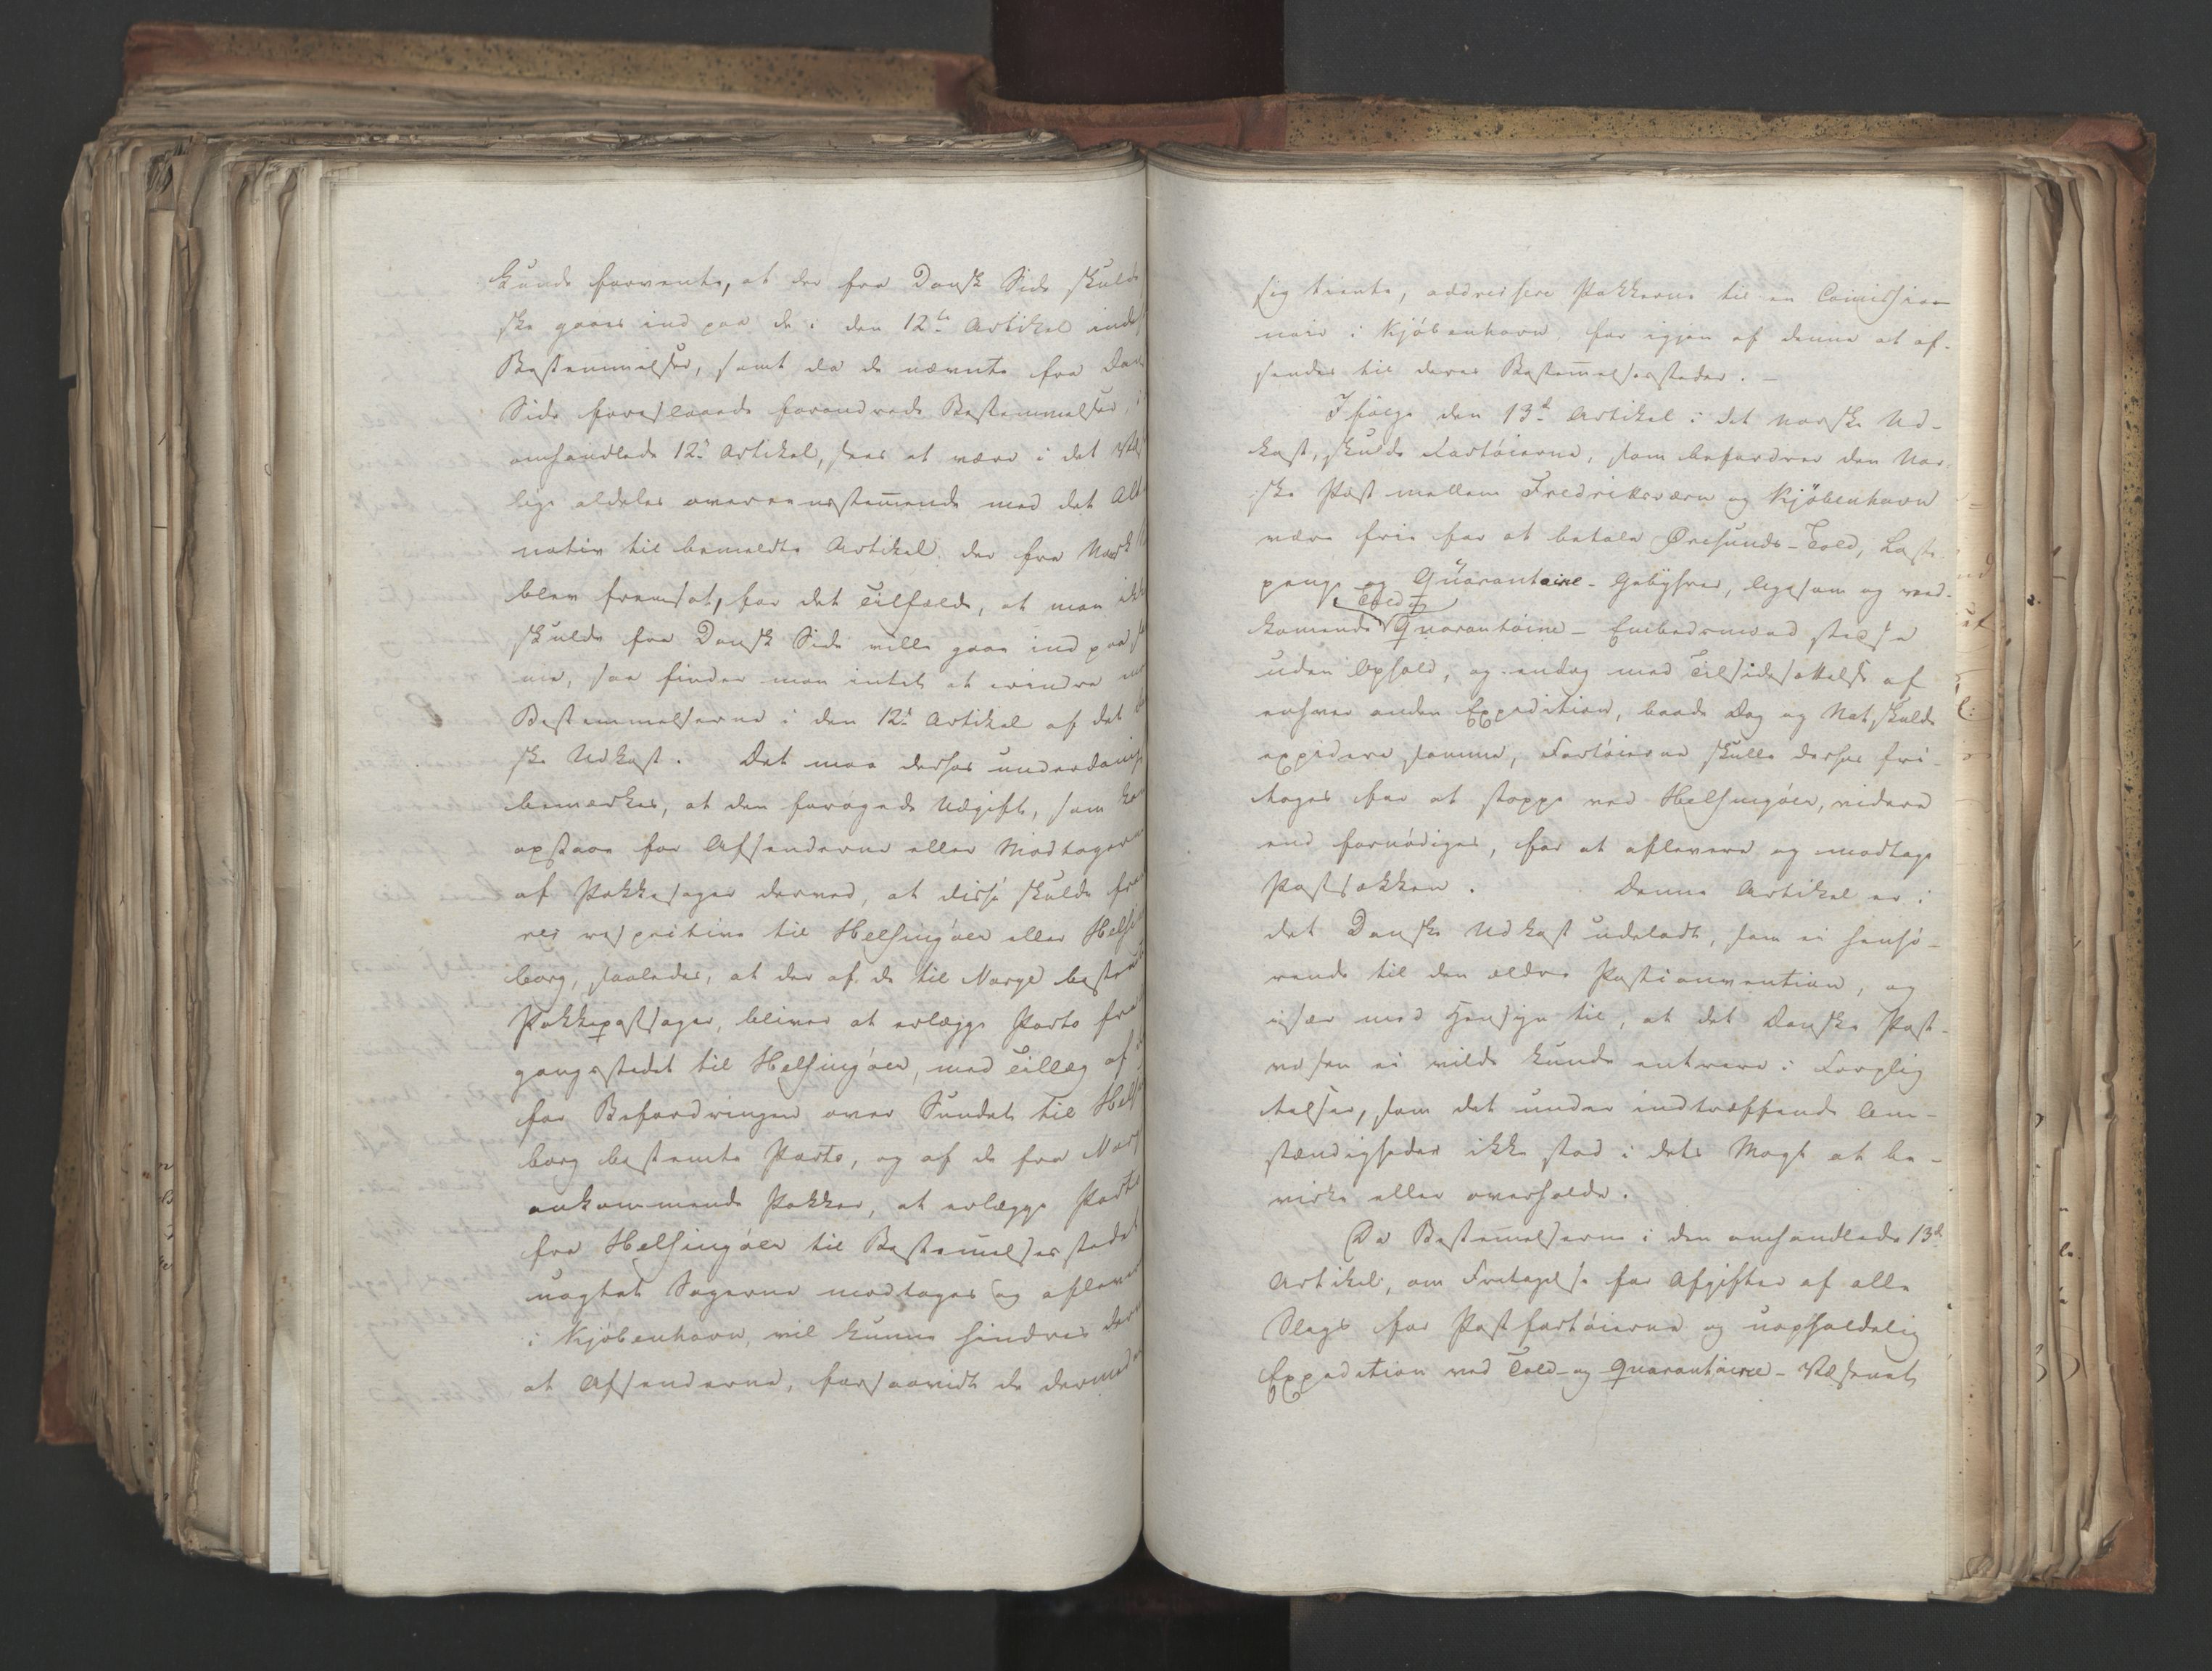 kunde forvente, at der fra Dansk Side skulde
ske gaaes ind paa de i den 12te Artikel inde
Bestemmelser, samt da de nævnte fra Dan
Side foreslaaede forandrede Bestemmelser, i
omhandlede 12te Artikel, sees at være i det Væs
lige aldeles overeensstemende med det Alt
nativ til bemeldte Artikel, der fra Norsk
blev fremsat, for det Tilfælde, at man ikke
skulde fra Dansk Side ville gaae ind paa
nie, saa finder man intet at erindre
Bestemmelserne i den 12te Artikel af det
ske Udkast. Det maa derhos underdanigst
bemærkes, at den forøgede Udgift, som
opstaae for Afsenderne eller Modtagerne
af Pakkesager derved, at disse skulde
res respective til Helsingøer eller Helsing
borg, saaledes, at der af de til Norge bestemte
Pakkepostsager, bliver at erlægge Porto fra
gangsstedet til Helsingøer, med Tillæg af
for Befordringen over Sundet til Hels
borg bestemte Porto, og af de fra Norge
ankommende Pakker, at erlægge Porto
fra Helsingøer til Bestemelsesstedet
uagtet Sagerne modtages og afleve
i Kjøbenhavn, vil kunne hindres der
at Afsenderne, forsaavidt de dermed
sig tiente, addressere Pakkerne til en Comission-
nair i Kjøbenhavn, for igjen af denne at af-
sendes til deres Bestemelsessteder. —
Ifølge den 13de Artikel i det norske Ud-
kast, skulde Fartøierne, som befordrer den Nor-
ske Post mellem Fredriksværn og Kjøbenhavn
være frie for at betale Øresunds-Told, Laste
penge og Quarantaine-Gebyhrer, ligesom og ved-
Told og
komende Quarantaine-Embedsmænd
uden Ophold, og endog med Tilsidesættelse af
enhver anden Expedition, baade Dag og Nat, skulde
expedere samme, Fartøierne skulle derhos fri-
tages for at stoppe ved Helsingøer, videre
end fornødiges, for at aflevere og modtage
Postsækken. Denne Artikel er i
det Danske Udkast udeladt, som ei henhø-
rende til den ældre Postconvention, og
især med Hensyn til, at det Danske Post-
væsen ei vilde kunde entrere i Forplig
telser, som det under indtræffende Om-
stændigheder ikke stod i dets Magt at be-
virke eller overholde.
Da Bestemelserne i den omhandlede 13de
Artikel, om Fritagelse for Afgifter af alle
Slags for Postfartøierne og uopholdelig
Expedition ved Told- og Quarantaine-Væsenet